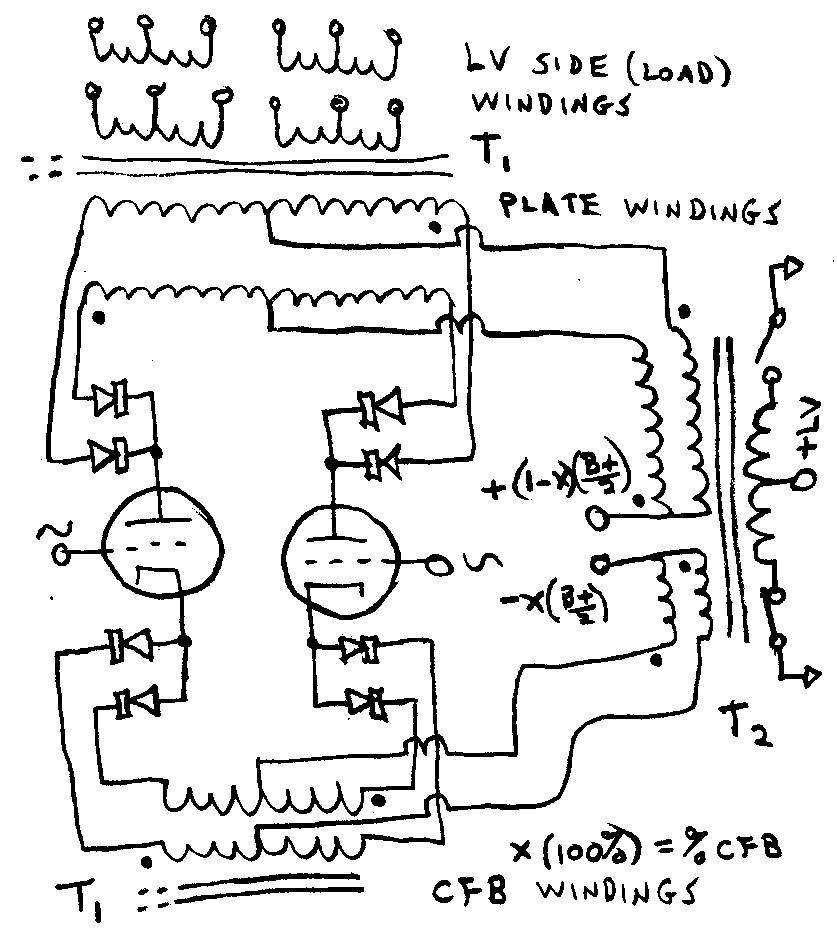 LV SIDE (LOAD)
WINDINGS
T1
PLATE WINDINGS
+LV
+(1-X)(B+/2)
-X(B+/2)
T2
X(100%) = % CFB
CFB WINDINGS
T1